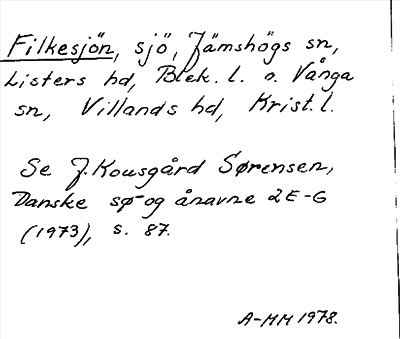 Filkesjön, sjö, Jämshögs sn,
Listers hd, Blek. l. o. Vånga
sn, Villands hd, Krist. l.
Se J. Kousgård Sørensen,
Danske sø- og ånavne 2 E-G
(1973), s. 87.
A-MM 1978.